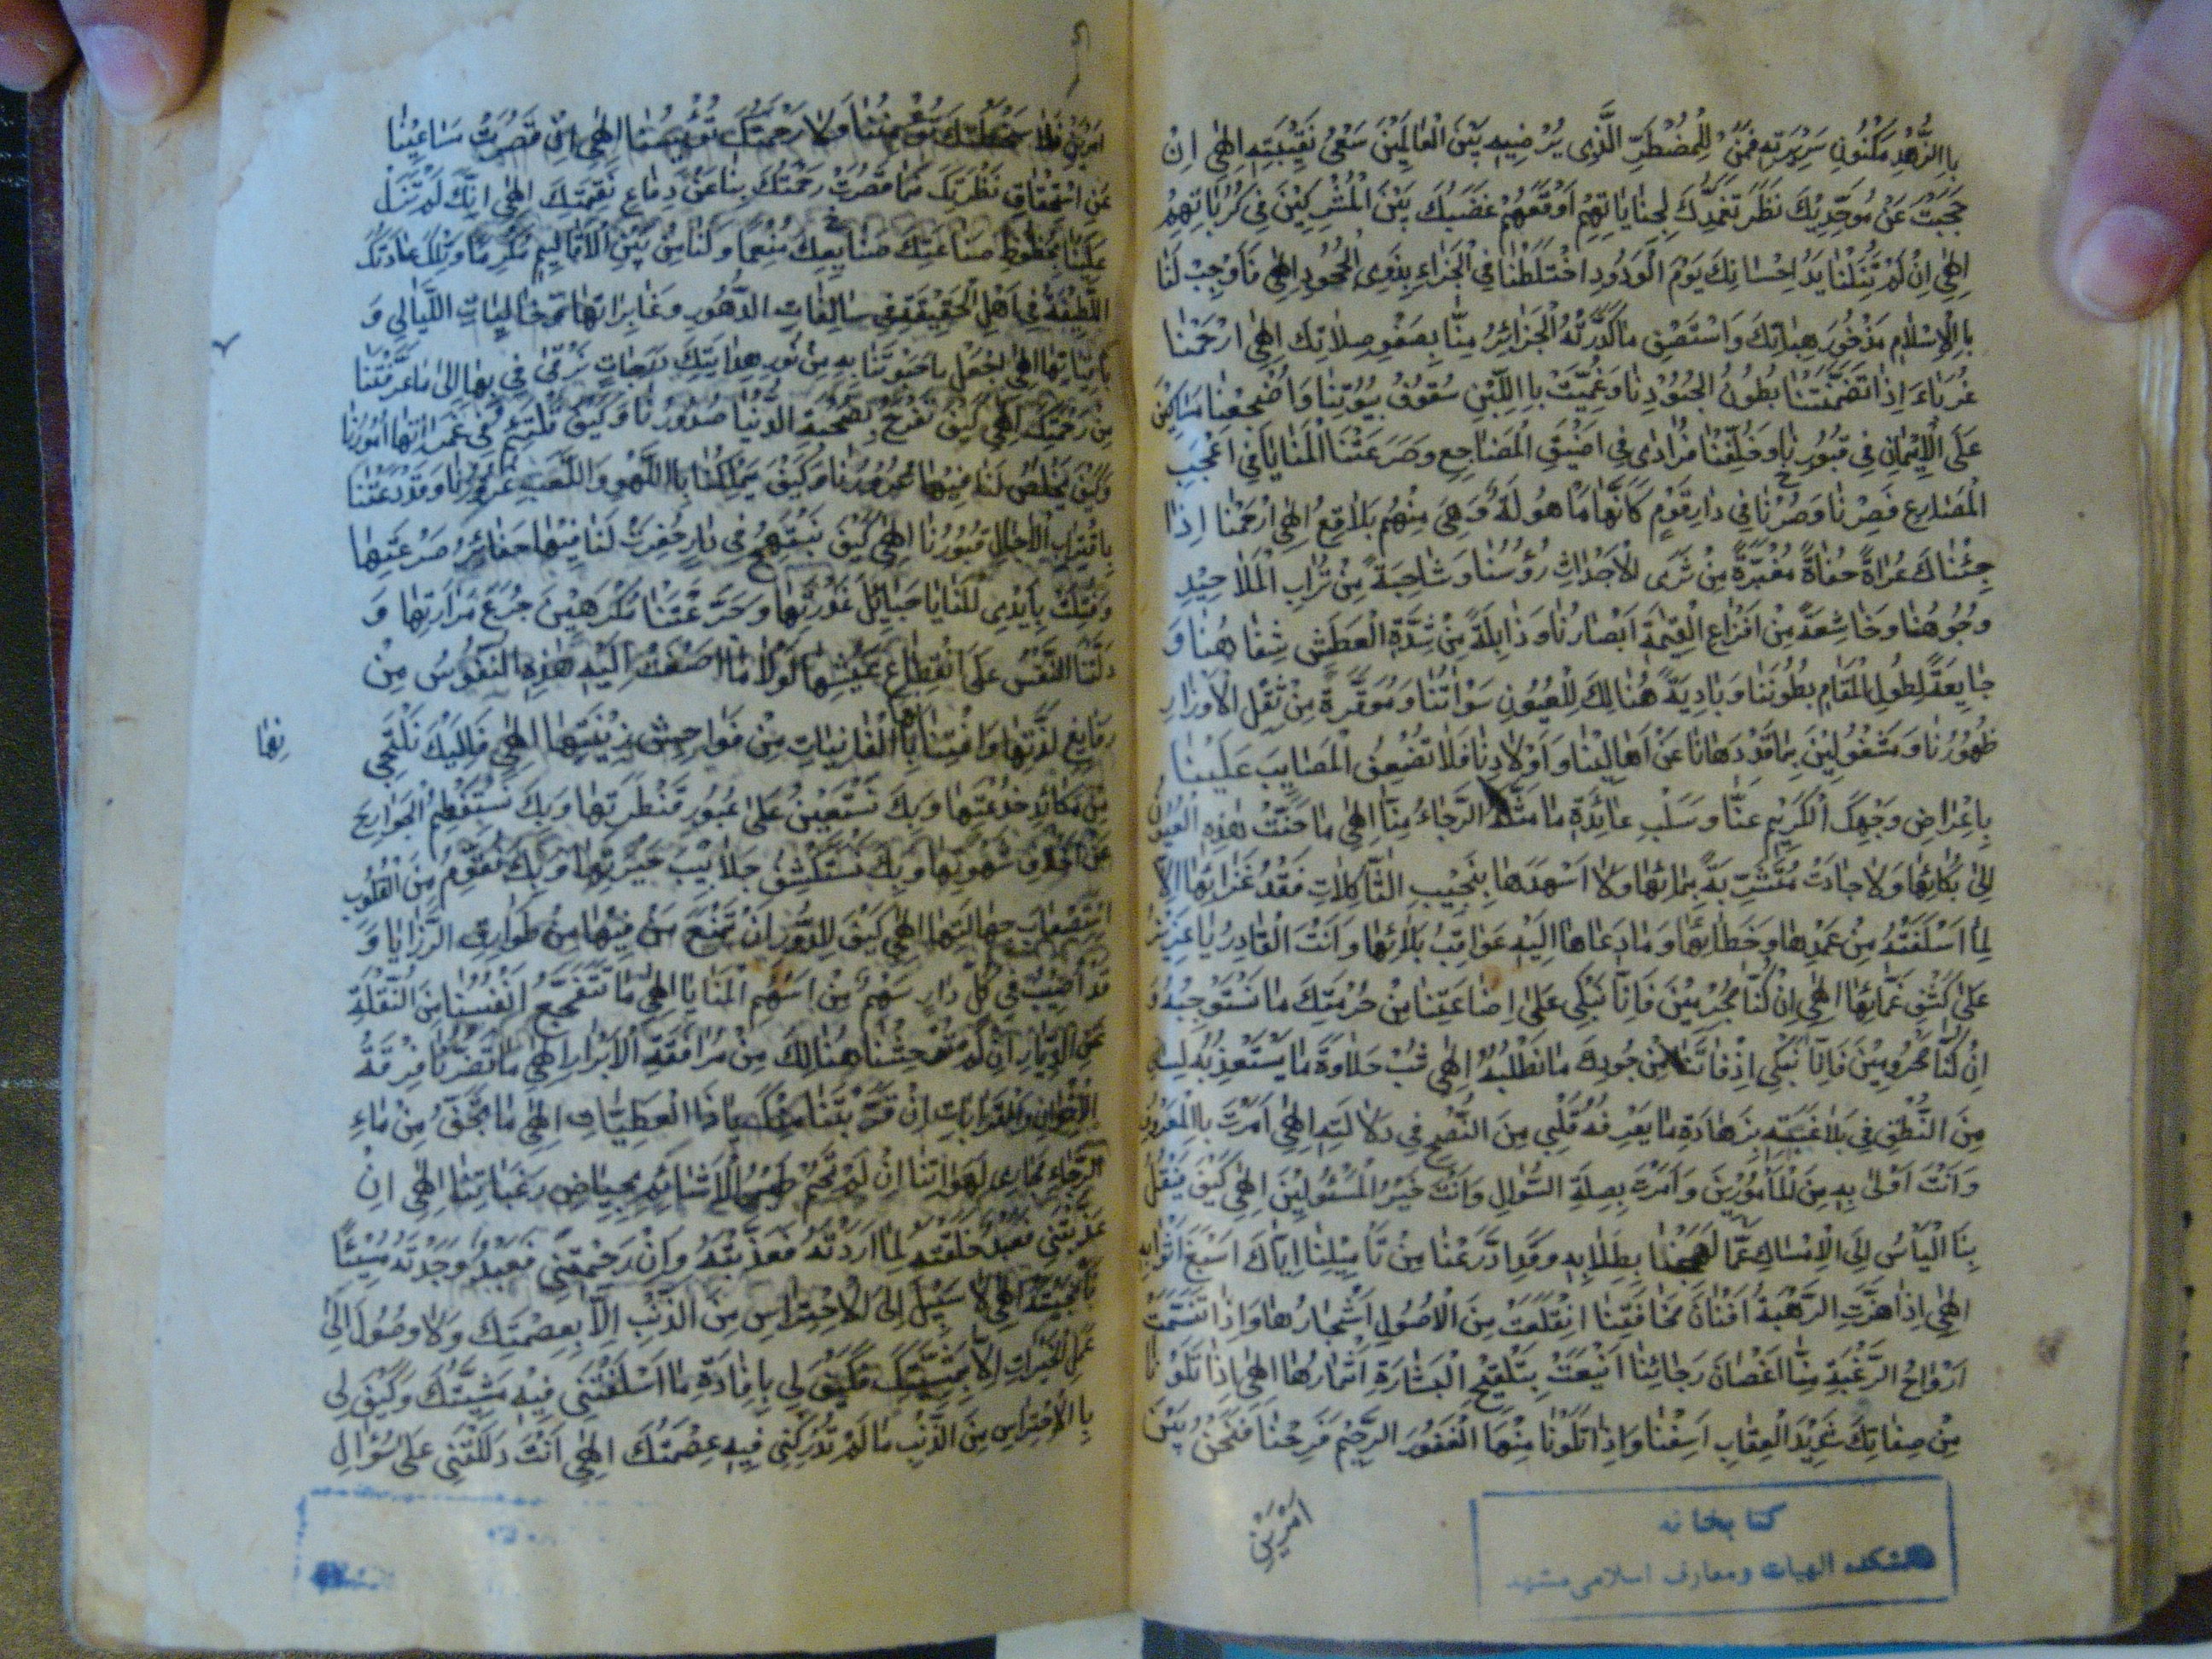 بِاالزُّهْدِ مَكْنُونِ سَرِيرَتِهِ فَمَنْ لِلْمُضْطَرِّ الَّذِي يُرْضِيهِ بَيْنَ الْعَالَمِيْنَ سَعْىُ نَقِيْبَتِهِ اِلٰهِي اِنْ
حَجَبْتَ عَنْ مُوَحِّدِيْكَ نَظَرَ تَغَمُّدِكَ لِجِنَايَاتِهِمْ اَوْقَعَهُمْ غَضَبُكَ بَيْنَ الْمُشْرِكِيْنَ فِي كُرُبَاتِهِمْ
اِلٰهِي اِنْ لَمْ تَنَلْنَا يَدُ اِحْسَانِكَ يَوْمَ الْوُرُودِ اخْتَلَطْنَا فِي الْجَزَاءِ بِذَوِى الْجُحُودِ اِلٰهِي فَاَوْجِبْ لَنَا
بِاالْاِسْلَامِ مَذْخُورَ هِبَاتِكَ وَاسْتَصْفِ مَا كَدَّرَتْهُ الْجَرَائِرُ مِنَّا بِصَفْوِ صِلَاتِكَ اِلٰهِي ارْحَمْنَا
غُرَبَاءَ اِذَا تَضَمَّنَتْنَا بُطُونُ لُحُودِنَا وَغُمِّيَتْ بِااللَّبِنِ سُقُوفُ بُيُوتِنَا وَاُضْجِعْنَا مَسَاكِيْنَ
عَلَى الْاَيْمَانِ فِي قُبُورِنَا وَخُلِّفْنَا فُرَادٰى فِي اَضْيَقِ الْمَضَاجِعِ وَصَرَعَتْنَا الْمَنَايَا فِي اَعْجَبِ
الْمَصَارِعِ وَصِرْنَا فِي دَارِ قَوْمٍ كَاَنَّهَا مَاْهُولَةٌ وَهِيَ مِنْهُمْ بَلَاقِعُ اِلٰهِي ارْحَمْنَا اِذَا
جِئْنَاكَ عُرَاةً حُفَاةً مُغْبَرَّةً مِنْ ثَرَى الْاَجْدَاثِ رُؤُسُنَا وَشَاحِبَةً مِنْ تُرَابِ الْمَلَاحِيْدِ
وُجُوهُنَا وَخَاشِعَةً مِنْ اَفْزَاعِ الْقِيٰمَةِ اَبْصَارُنَا وَذَابِلَةً مِنْ شِدَّةِ الْعَطَشِ شِفَاهُنَا وَ
جَايِعَةً لِطُولِ الْمَقَامِ بُطُونُنَا وَبَادِيَةً هُنَالِكَ لِلْعُيُونِ سَوْاٰتُنَا وَمُوَقَّرَةً مِنْ ثِقْلِ الْاَوْزَارِ
ظُهُورُنَا وَمَشْغُولِيْنَ بِمَا قَدْ دَهَانَا عَنْ اَهَالِيْنَا وَاَوْلَادِنَا فَلَا تُضَعِّفِ الْمَصَايِبَ عَلَيْنَا
بِاِعْرَاضِ وَجْهِكَ الْكَرِيْمِ عَنَّا وَسَلْبِ عَائِدَةِ مَا مَثَّلَهُ الرَّجَاءُ مِنَّا اِلٰهِي مَا حَنَّتْ هٰذِهِ الْعُيُونُ
اِلٰى بُكَائِهَا وَلَا جَادَتْ مُتَشَرِّبَةً بِمَائِهَا وَلَا اَسْهَدَهَا بِنَحِيْبِ الثَّاكِلَاتِ فَقْدُ عَزَائِهَا اِلَّا
لِمَا اَسْلَفَتْهُ مِنْ عَمْدِهَا وَخَطَائِهَا وَمَا دَعَاهَا اِلَيْهِ عَوَاقِبُ بَلَائِهَا وَاَنْتَ الْقَادِرُ يَا عَزِيْزُ
عَلٰى كَشْفِ غَمَّائِهَا اِلٰهِي اِنْ كُنَّا مُجْرِمِيْنَ فَاِنَّا نَبْكِي عَلٰى اِضَاعَتِنَا مِنْ حُرْمَتِكَ مَا نَسْتَوْجِبُهُ وَ
اِنْ كُنَّا مَحْرُومِيْنَ فَاِنَّا نَبْكِي اِذْ فَاتَنَا مِنْ جُودِكَ مَا نَطْلُبُهُ اِلٰهِي شُبْ حَلَاوَةَ مَا يَسْتَعْذِبُهُ لِسَانِي
مِنَ النُّطْقِ فِي بَلَاغَتِهِ بِزَهَادَةِ مَا يَعْرِفُهُ قَلْبِي مِنَ النُّصْحِ فِي دَلَالَتِهِ اِلٰهِي اَمَرْتَ بِاالْمَعْرُوفِ
وَاَنْتَ اَوْلٰى بِهِ مِنَ الْمَاْمُورِيْنَ وَاَمَرْتَ بِصِلَةِ السُّؤَالِ وَاَنْتَ خَيْرُ الْمَسْئُولِيْنَ اِلٰهِي كَيْفَ يَنْقُلُ
بِنَا الْيَاْسُ اِلَى الْاِمْسَاكِ عَمَّا لَهِجْنَا بِطِلَابِهِ وَقَدِ ادَّرَعْنَا مِنْ تَاْمِيْلِنَا اِيَّاكَ اَسْبَغَ اَثْوَابِهِ
اِلٰهِي اِذَا هَزَّتِ الرَّهْبَةُ اَفْنَانَ مَخَافَتِنَا انْقَلَعَتْ مِنَ الْاُصُولِ اَشْجَارُهَا وَاِذَا تَنَسَّمَتْ
اَرْوَاحُ الرَّغْبَةِ مِنَّا اَغْصَانَ رَجَائِنَا اَيْنَعَتْ بِتَلْقِيْحِ الْبَشَارَةِ اَثْمَارُهَا اِلٰهِي اِذَا تَلَوْنَا
مِنْ صِفَاتِكَ شَدِيْدَ الْعِقَابِ اَسِفْنَا وَاِذَا تَلَوْنَا مِنْهَا الْغَفُورَ الرَّحِيْمَ فَرِحْنَا فَنَحْنُ بَيْنَ
اَمْرَيْنِ
كتابخانه
دانشكده الهيات ومعارف اسلامى مشهد
اَمْرَيْنِ فَلَا سَخَطُكَ يُؤْمِنُنَا وَلَا رَحْمَتُكَ تُؤْيِسُنَا اِلٰهِي اِنْ قَصُرَتْ مَسَاعِيْنَا
عَنِ اسْتِحْقَاقِ نَظْرَتِكَ فَمَا قَصُرَتْ رَحْمَتُكَ بِنَا عَنْ دِفَاعِ نِقْمَتِكَ اِلٰهِي اِنَّكَ لَمْ تَزَلْ
عَلَيْنَا بِحُظُوظِ صَنَائِعِكَ مُنْعِمًا وَلَنَا مِنْ بَيْنِ الْاَقَالِيْمِ مُكْرِمًا وَتِلْكَ عَادَتُكَ
اللَّطِيْفَةُ فِي اَهْلِ الْحَقِيْقَةِ فِي سَالِفَاتِ الدُّهُورِ وَغَابِرَاتِهَا وَخَالِيَاتِ اللَّيَالِي وَ
بَاقِيَاتِهَا اِلٰهِي اجْعَلْ مَا حَبَوْتَنَا بِهِ مِنْ نُورِ هِدَايَتِكَ دَرَجَاتٍ نَرْقٰى بِهَا اِلٰى مَا عَرَّفْتَنَا
مِنْ رَحْمَتِكَ اِلٰهِي كَيْفَ تَفْرَحُ بِصُحْبَةِ الدُّنْيَا صُدُورُنَا وَكَيْفَ تَلْتَئِمُ فِي غَمَرَاتِهَا اُمُورُنَا
وَكَيْفَ يَخْلُصُ لَنَا فِيْهَا سُرُورُنَا وَكَيْفَ يَمْلِكُنَا بِااللَّهْوِ وَاللَّعِبِ غُرُورُنَا وَقَدْ دَعَتْنَا
بِاقْتِرَابِ الْاٰجَالِ قُبُورُنَا اِلٰهِي كَيْفَ نَبْتَهِجُ فِي دَارٍ حُفِرَتْ لَنَا فِيْهَا حَفَائِرُ صَرْعَتِهَا
وَفُتِلَتْ بِاَيْدِي الْمَنَايَا حَبَائِلُ غَدْرَتِهَا وَجَرَّعَتْنَا مُكْرَهِيْنَ جُرَعَ مَرَارَتِهَا وَ
دَلَّتْنَا النَّفْسُ عَلَى انْقِطَاعِ عَيْشِهَا لَوْلَا مَا اَصْغَتْ اِلَيْهِ هٰذِهِ النُّفُوسُ مِنْ
رَفَايِغِ لَذَّتِهَا وَافْتِتَانِهَا بِاالْفَانِيَاتِ مِنْ فَوَاحِشِ زِيْنَتِهَا اِلٰهِي فَاِلَيْكَ نَلْتَجِي
نِهَا
مِنْ مَكَائِدِ خُدْعَتِهَا وَبِكَ نَسْتَعِيْنُ عَلٰى عُبُورِ قَنْطَرَتِهَا وَبِكَ نَسْتَفْطِمُ الْجَوَارِحَ
عَنْ اَخْلَافِ شَهْوَتِهَا وَبِكَ نَسْتَكْشِفُ جَلَابِيْبَ حَيْرَتِهَا وَبِكَ نُقَوِّمُ مِنَ الْقُلُوبِ
اسْتِصْعَابَ جَهَالَتِهَا اِلٰهِي كَيْفَ لِلدُّورِ اَنْ تَمْنَعَ مَنْ فِيْهَا مِنْ طَوَارِقِ الرَّزَايَا وَ
قَدْ اُصِيْبَ فِي كُلِّ دَارٍ سَهْمٌ مِنْ اَسْهُمِ الْمَنَايَا اِلٰهِي مَا تَتَفَجَّعُ اَنْفُسُنَا مِنَ النُّقْلَةِ
عَنِ الدِّيَارِ اِنْ لَمْ تُوْحِشْنَا هُنَالِكَ مِنْ مُرَافَقَةِ الْاَبْرَارِ اِلٰهِي مَا تَضُرُّنَا فِرْقَةُ
الْاِخْوَانِ وَالْقَرَابَاتِ اِنْ قَرَّبْتَنَا مِنْكَ يَا ذَا الْعَطِيَّاتِ اِلٰهِي مَا تَجِفُّ مِنْ مَاءِ
الرَّجَاءِ مَجَارِي لَهَوَاتِنَا اِنْ لَمْ تَحُمْ طَيْرُ الْاَشَائِمِ بِحِيَاضِ رَغَبَاتِنَا اِلٰهِي اِنْ
عَذَّبْتَنِي فَعَبْدٌ خَلَقْتَهُ لِمَا اَرَدْتَهُ فَعَذَّبْتَهُ وَاِنْ رَحِمْتَنِي فَعَبْدٌ وَجَدْتَهُ مُسِيْئًا
فَاَنْجَيْتَهُ اِلٰهِي لَا سَبِيْلَ اِلَى الْاِحْتِرَاسِ مِنَ الذَّنْبِ اِلَّا بِعِصْمَتِكَ وَلَا وُصُولَ اِلٰى
عَمَلِ الْخَيْرَاتِ اِلَّا بِمَشِيَّتِكَ فَكَيْفَ لِي بِاِفَادَةِ مَا اَسْلَفَتْنِي فِيْهِ مَشِيَّتُكَ وَكَيْفَ لِي
بِاالْاِحْتِرَاسِ مِنَ الذَّنْبِ مَا لَمْ تُدْرِكْنِي فِيْهِ عِصْمَتُكَ اِلٰهِي اَنْتَ دَلَلْتَنِي عَلٰى سُؤَالِ